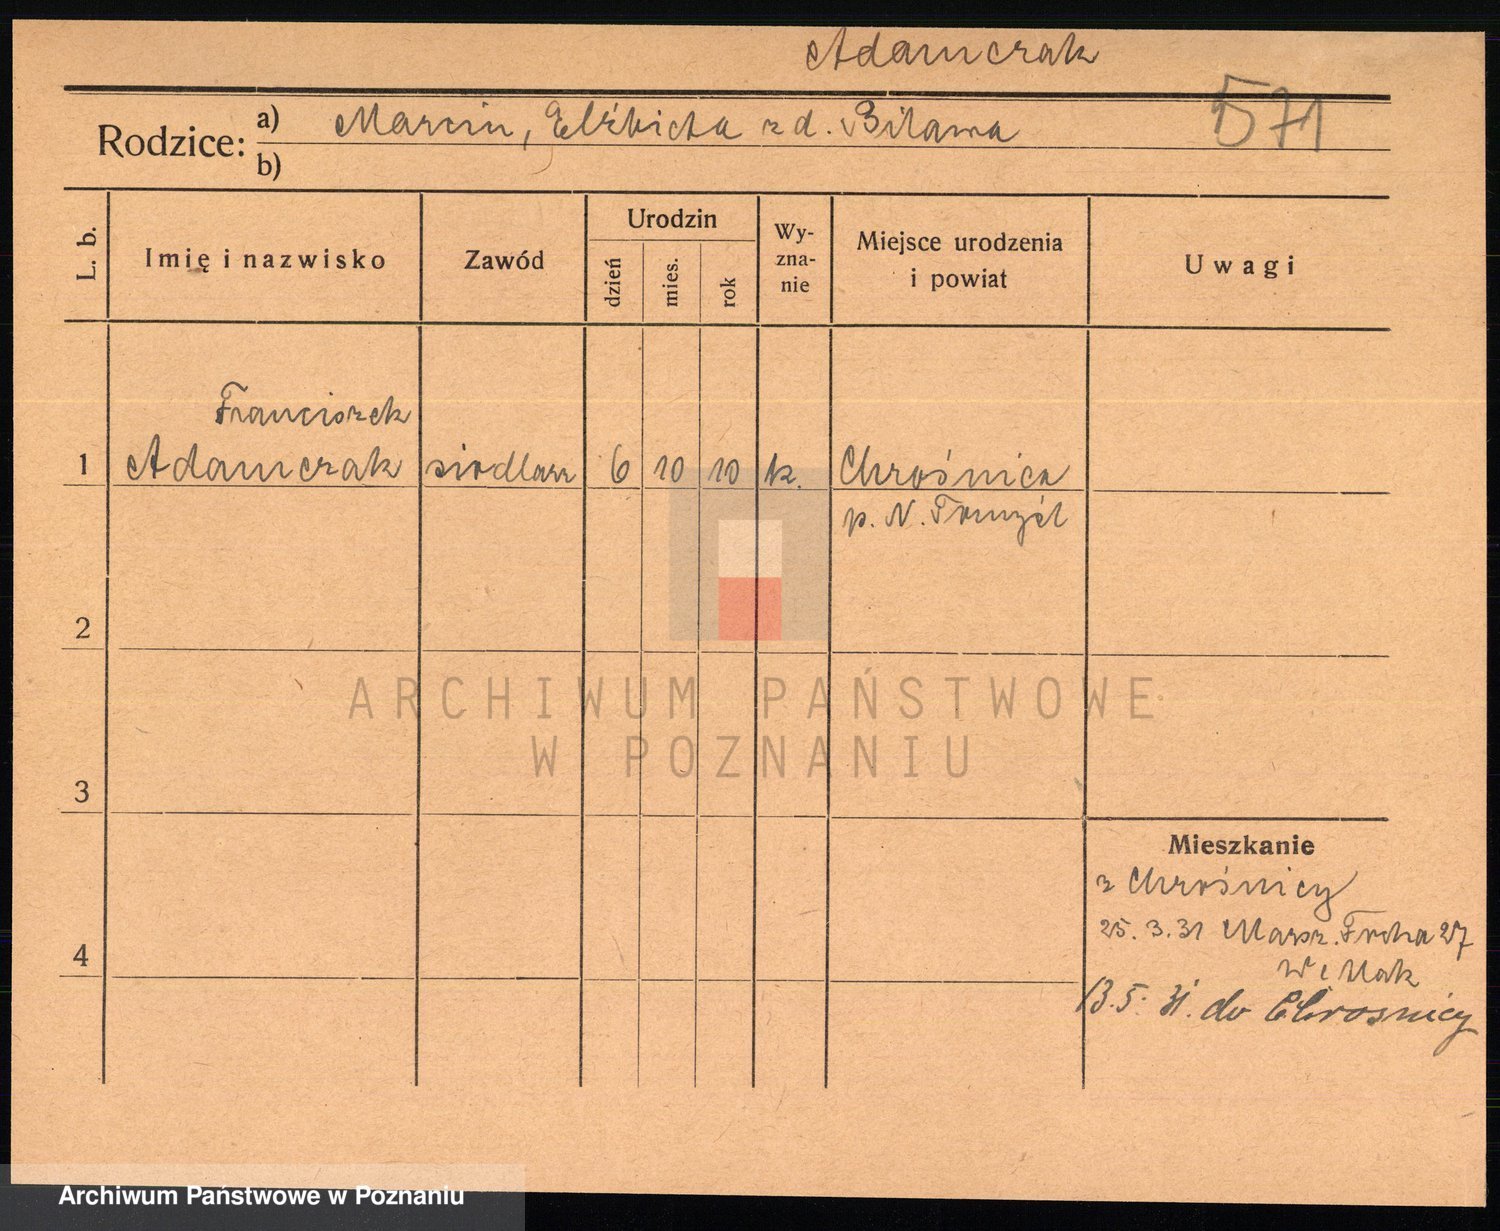 Adamczak
571
Rodzice:
a) Marcin, Elżbieta z d. Bilawa
b)
L. b.
Imię i nazwisko
Zawód
Urodzin
dzień
mies.
rok
Wy-
zna-
nie
Miejsce urodzenia
i powiat
Uwagi
Franciszek
1 Adamczak siodlarz 6 10 10 k. Chrośnica
p. N. Tomyśl
2
3
4
Mieszkanie
z Chrośnicy
25. 3. 31 Marsz. Focha 27
13. 5. 31. do Chrosnicy
ARCHIWUM PAŃSTWOWE
W POZNANIU
Archiwum Państwowe w Poznaniu